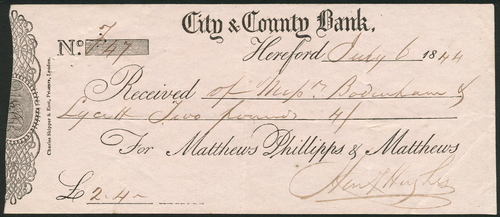 City & County Bank.
No. 7/747
Hereford, July 6 1844
Received of Messrs Bodenham &
Lycett Two pounds 4/
For Matthews Phillipps & Matthews
£2.4-
Henry Hughes
Charles Skipper & East, Printers, London.